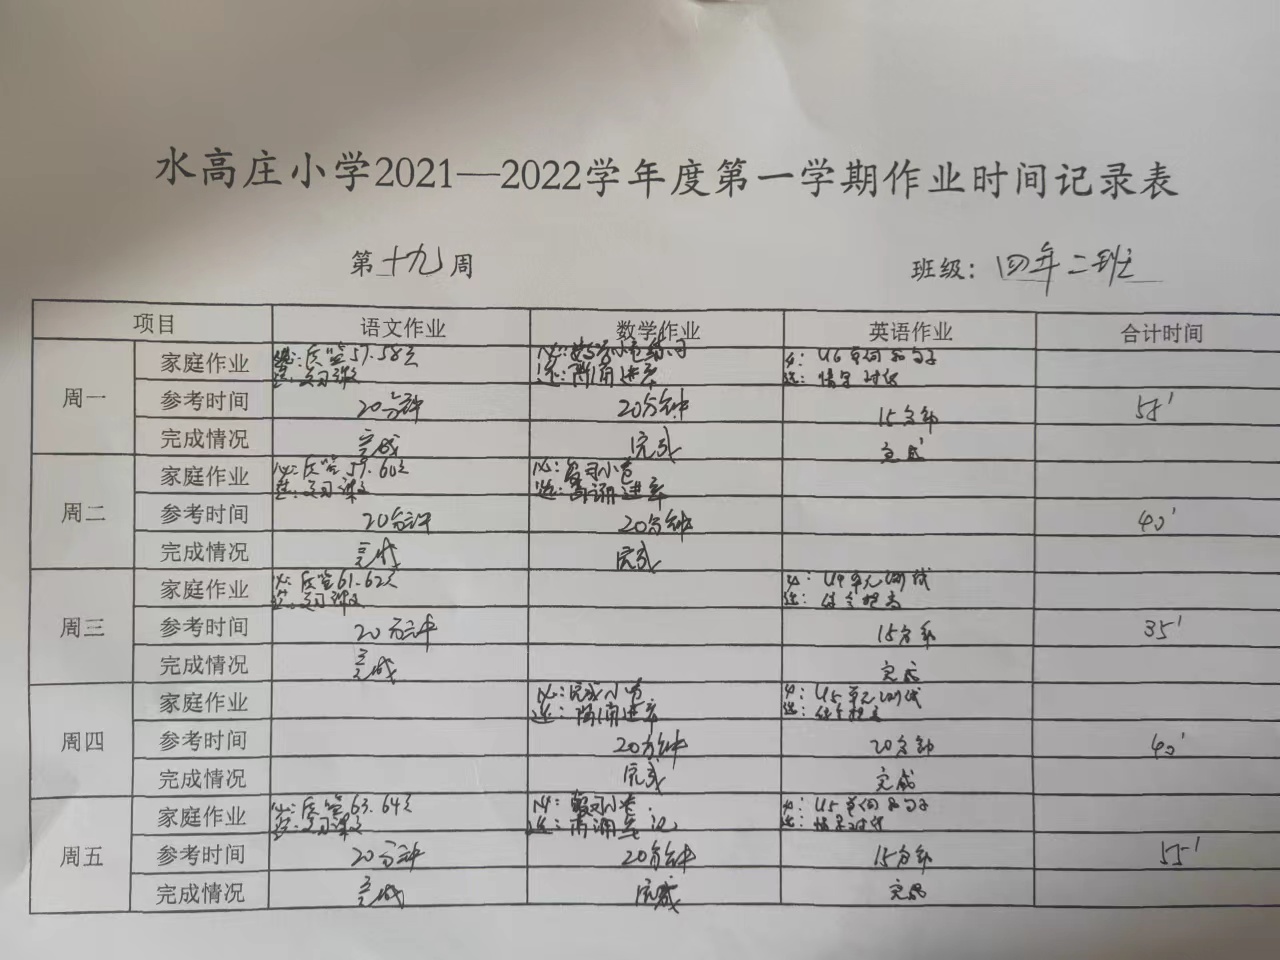 水高庄小学2021—2022学年度第一学期作业时间记录表
第十九周 班级：四年二班
项目 语文作业 数学作业 英语作业 合计时间
周一
家庭作业 57.58 必：U6单词和句子
选：复习课文 选： 选：情景对话
参考时间 20分钟 20分钟 15分钟
完成情况 完成 完成 完成
周二
家庭作业 59.60 必：复习小卷
选：复习课文 选：
参考时间 20分钟 20分钟 40'
完成情况 完成 完成
周三
家庭作业 必： 61.62 必： 单元测试
选：复习课文 选：
参考时间 20分钟 15分钟 35'
完成情况 完成 完成
周四
家庭作业 必：完成小卷 必：U5单元测试
选： 选：
参考时间 20分钟 20分钟 40'
完成情况 完成 完成
周五
家庭作业 必： 63.64 必：复习小卷 必：U5单词和句子
选：复习课文 选： 选：情景对话
参考时间 20分钟 20分钟 15分钟 55'
完成情况 完成 完成 完成